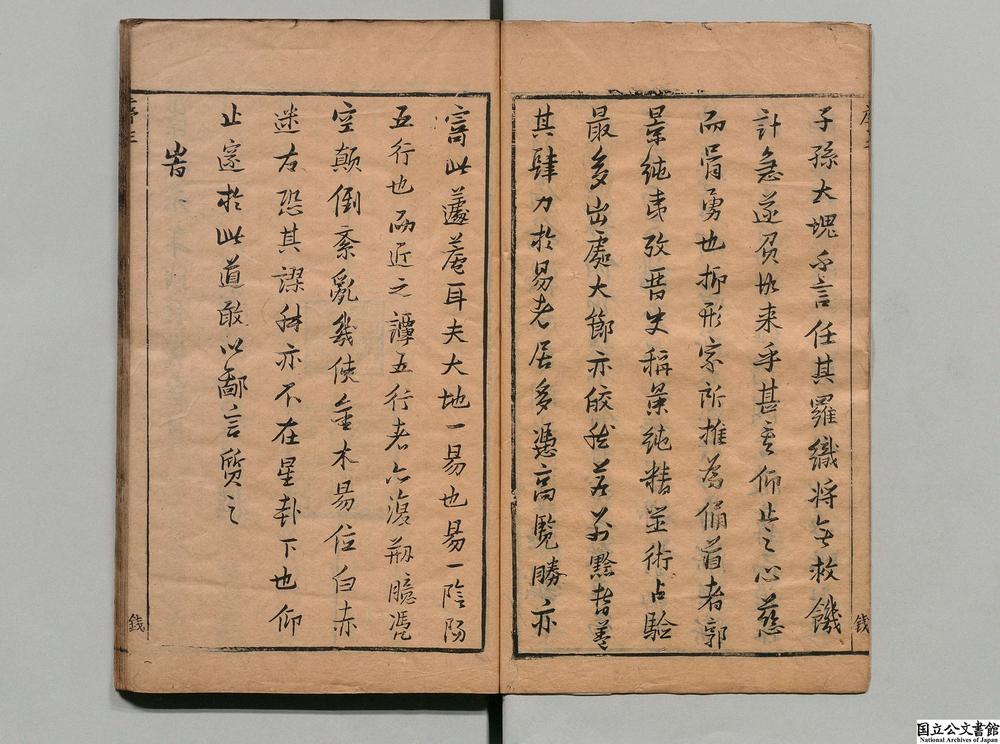 子孫大塊不言任其羅織將無救饑
計急遂負
來乎甚矣仰止之心慈
而肩勇也抑形家所推為
首者郭
景純
攷晉史稱景純精
術占驗
最多出處大節亦皎然若
黔
善
其肆力於易者居多憑高覽勝亦
寄此蘧菴耳夫大地一易也易一陰陽
五行也而近之譚五行者亦復
臆憑
空顛倒紊亂幾使金木易位白赤
迷方恐其謬種亦不在星卦下也仰
止寔於此道敢以鄙言質之
旹
錢
錢
国立公文書館
National Archives of Japan